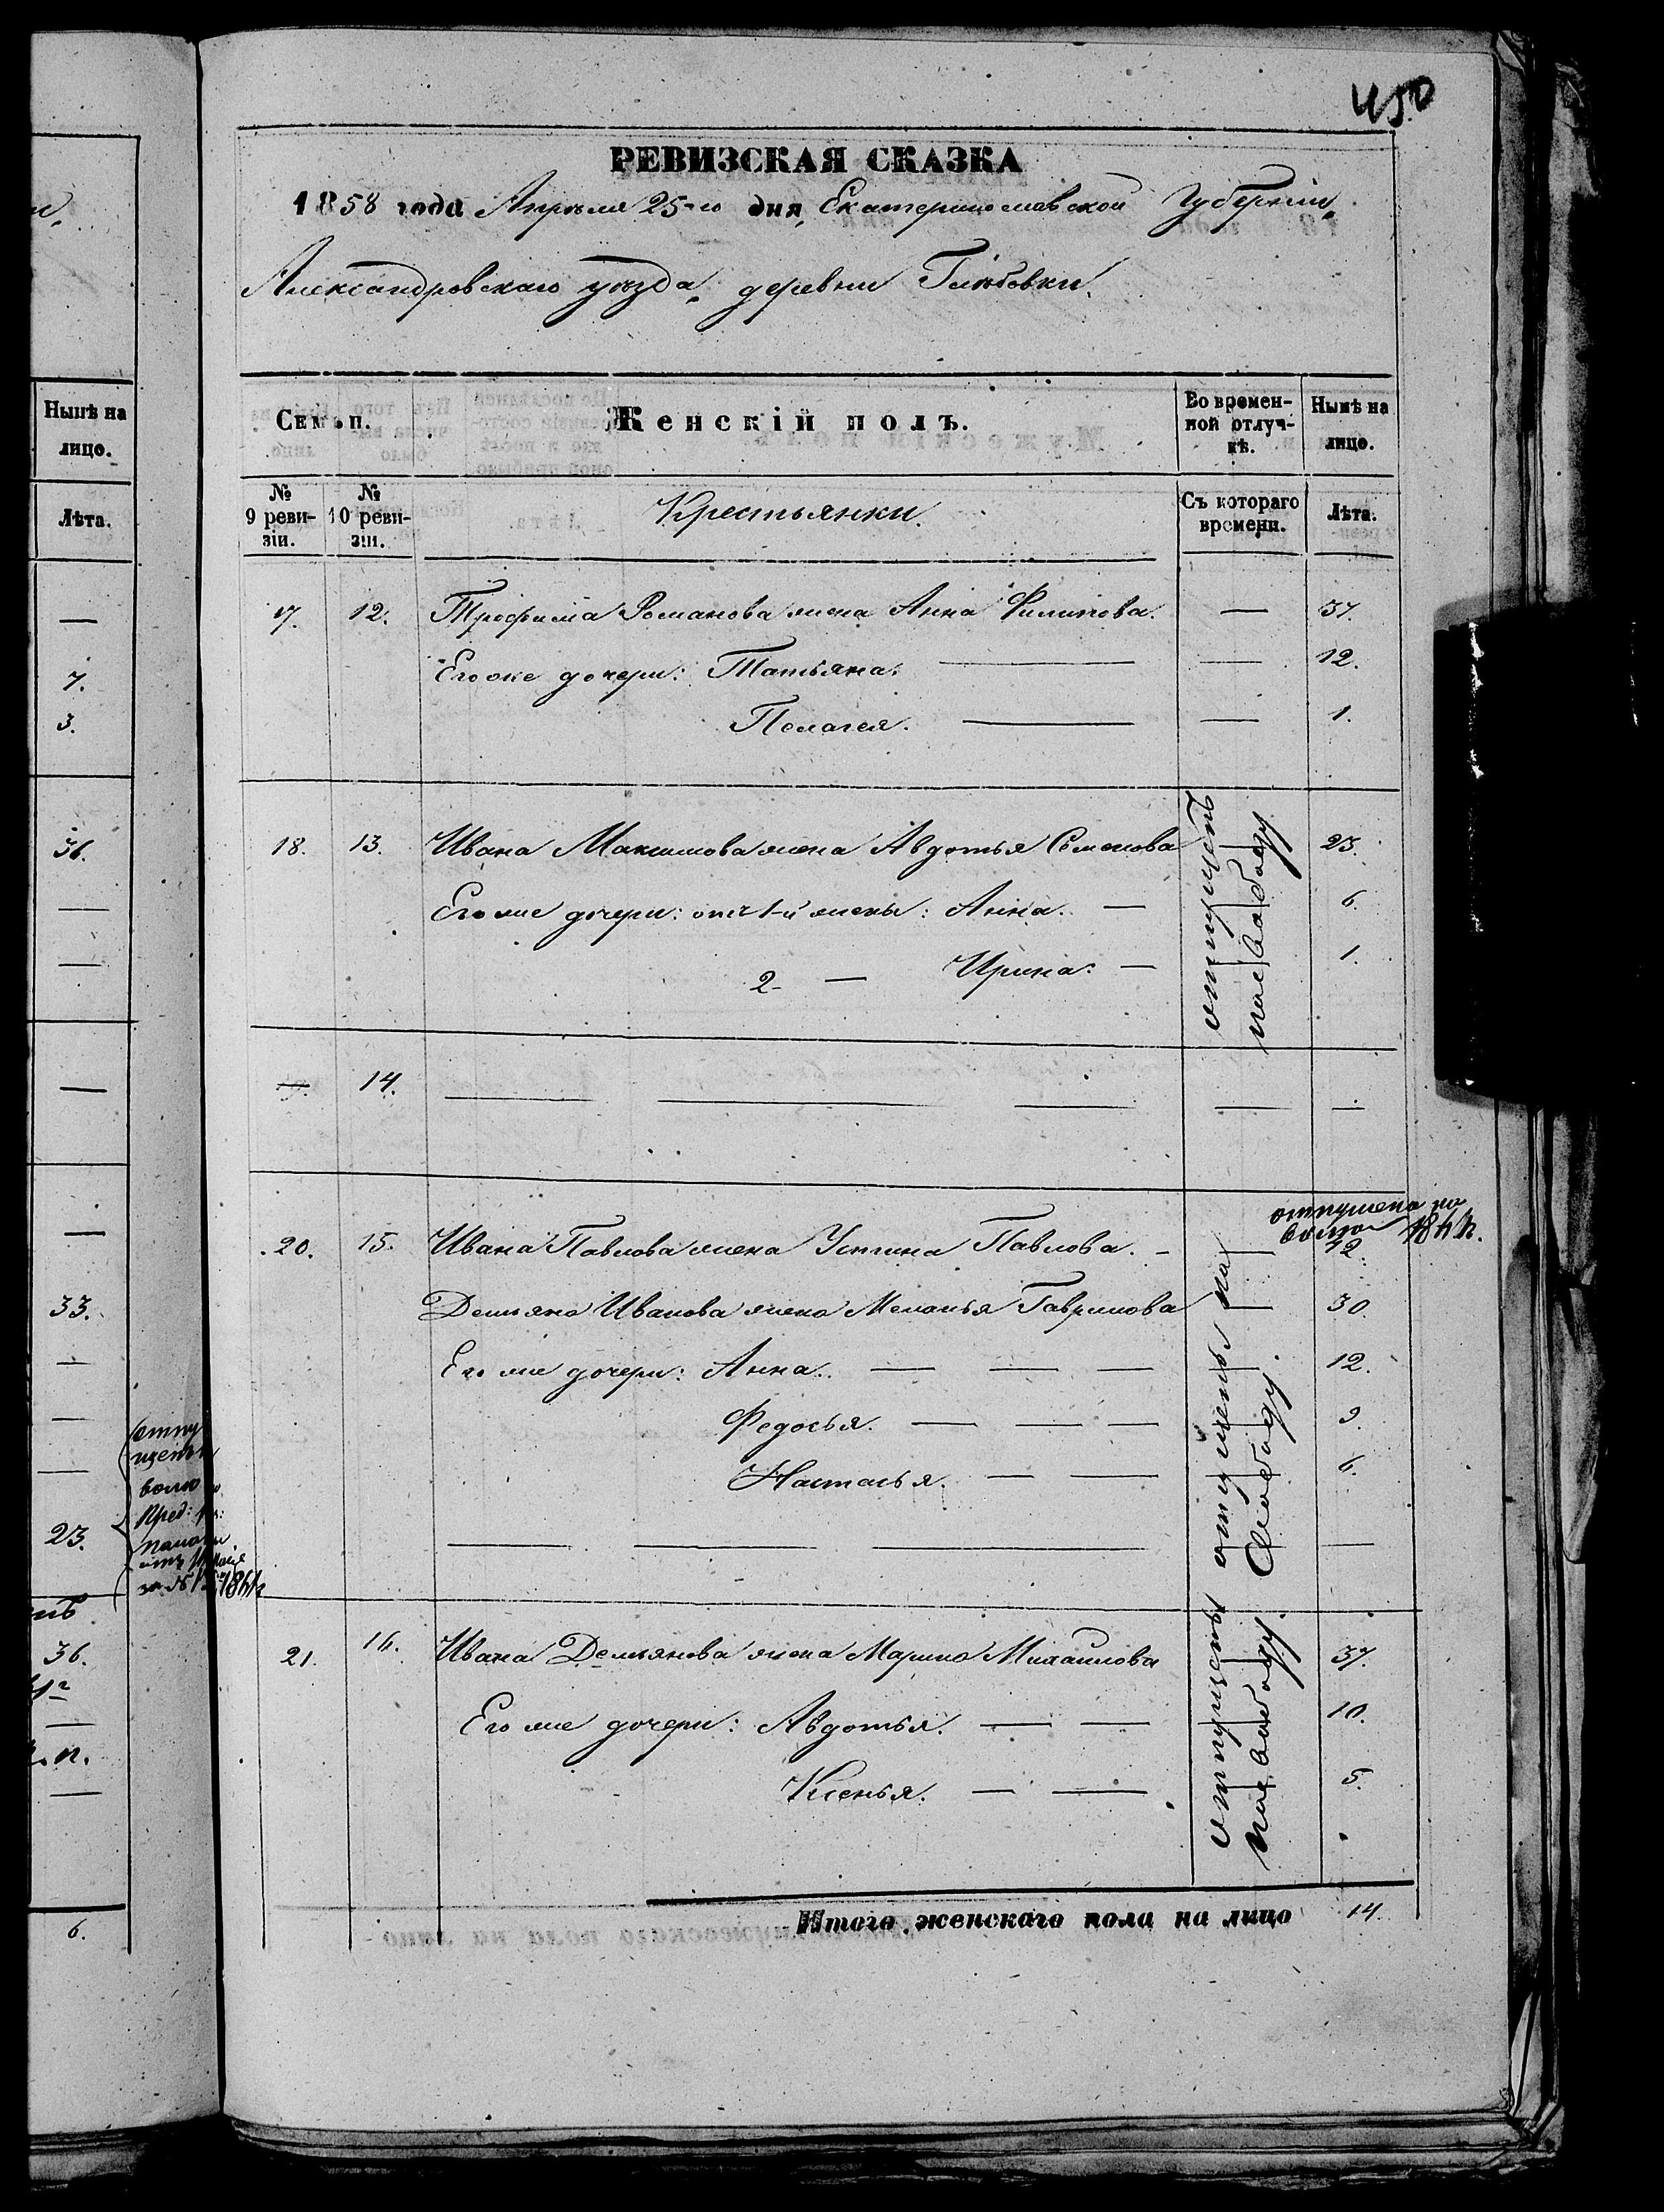 450
РЕВИЗСКАЯ СКАЗКА
1858 года Апрѣля 25-го дня, Екатеринославской Губерніи,
Александровскаго уѣзда, деревни Глѣбовки.
Нынѣ на
лицо.
Лѣта.
Семьи.
Женскій полъ.
Во времен-
ной отлуч-
кѣ.
Нынѣ на
лицо.
№
9 реви-
зіи.
№
10 реви-
зіи.
Крестьянки.
Съ котораго
времени.
Лѣта.
17. 12. Трофима Романова жена Анна Филипова. — 37.
Его же дочери: Татьяна. — — 12.
Пелагея. — — 1.
18. 13. Ивана Максимова жена Авдотья Семенова 23.
Его же дочери: отъ 1-й жены: Анна. — 6.
2 - — Ирина. — 1.
отпущенъ
на свободу
14. — — — — —
отпущена на
волю
20. 15. Ивана Павлова жена Устина Павлова. - 42.
Демьяна Иванова жена Меланья Гаврилова 30.
Его же дочери: Анна. — — — 12.
Федосья. — — — 9.
Настасья. — — 6.
— — — —
отпущены на
Свободу.
21. 16. Ивана Демьянова жена Марина Михаилова 37.
Его же дочери: Авдотья. — — 10.
Ксенья. — — 5.
отпущены
на свободу.
Итого женскаго пола на лицо 14.
—
7.
3.
36.
—
—
—
—
33.
—
—
—
23.
волю
36.
—
—
6.